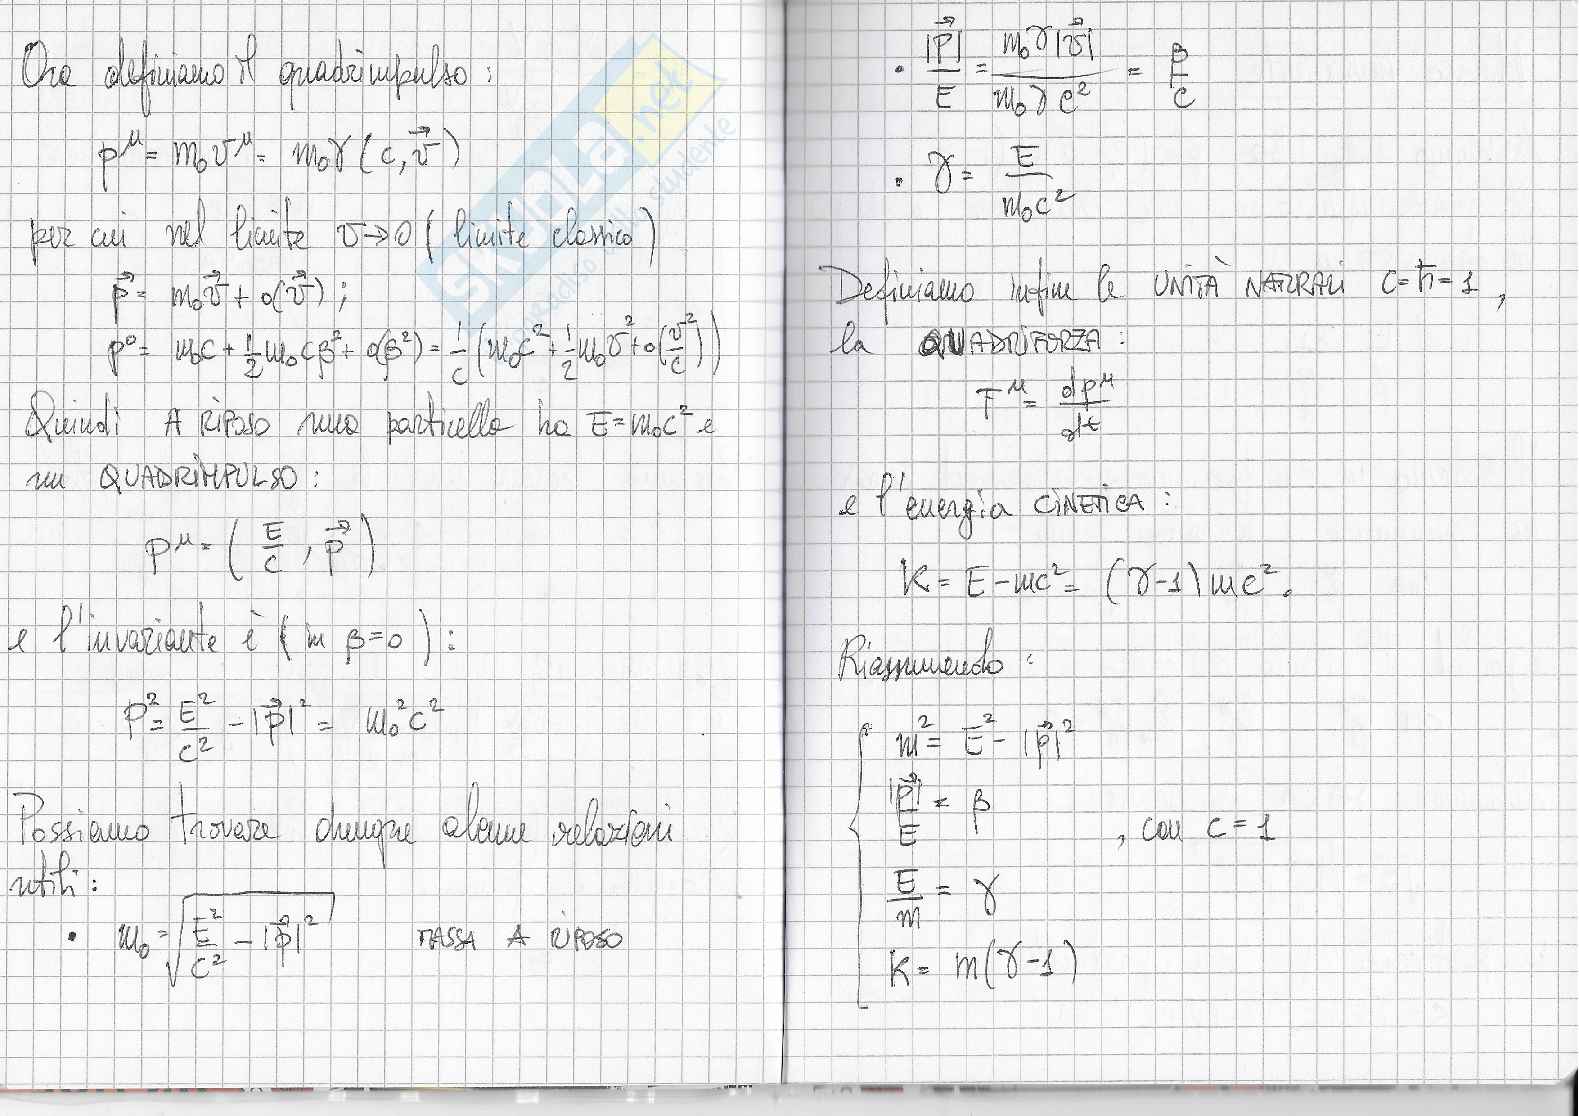 Ora definiamo il quadrimpulso :
p^μ = m₀v^μ = m₀γ(c, v⃗)
per cui nel limite v→0 ( limite classico)
p⃗ = m₀v⃗ + o(v⃗) ;
p⁰ = m₀c + 1/2 m₀cβ² + o(β²) = 1/c (m₀c² + 1/2 m₀v² + o(v²/c))
Quindi A RIPOSO una particella ha E = m₀c² e
un QUADRIMPULSO :
p^μ = ( E/c , p⃗ )
e l'invariante è ( in β=0 ) :
p² = E²/c² - |p⃗|² = m₀²c²
Possiamo trovare dunque alcune relazioni
utili :
• m₀ = √(E²/c² - |p⃗|²) MASSA A RIPOSO
• |p⃗|/E = m₀γ|v⃗|/m₀γc² = β/c
• γ = E/m₀c²
Definiamo infine le UNITÀ NATURALI c=ħ=1 ,
la QUADRIFORZA :
F^μ = dp^μ/dt
e l'energia CINETICA :
K = E - mc² = (γ-1)mc² .
Riassumendo :
m² = E² - |p⃗|²
|p⃗|/E = β
, con c = 1
E/m = γ
K = m(γ-1)
SKUOLA.net